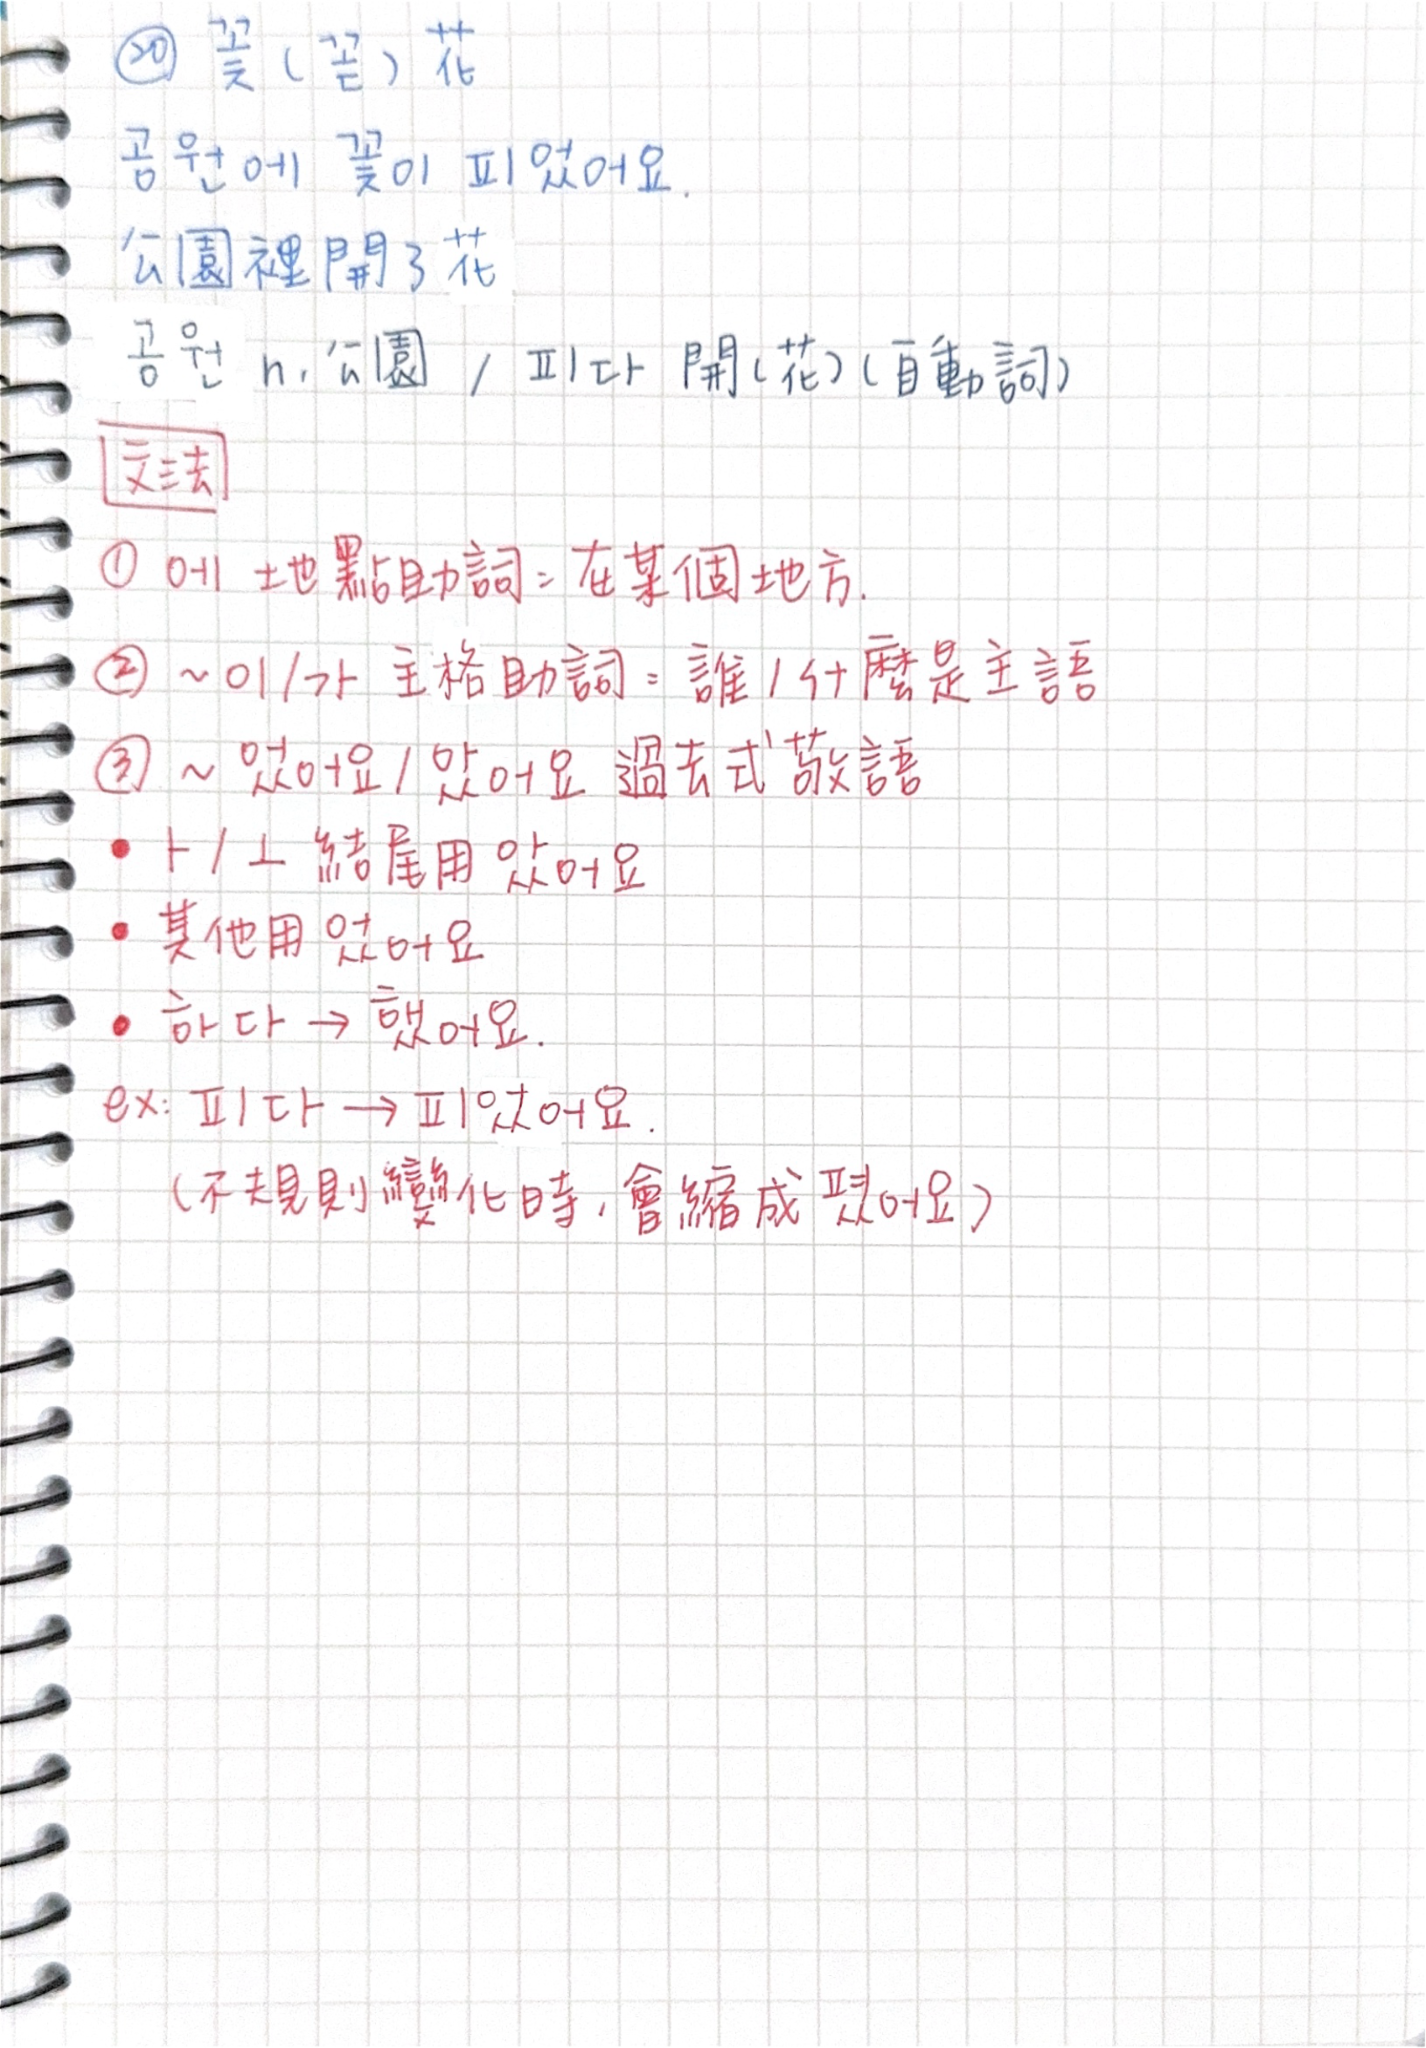 ⑳ 꽃(꼳) 花
공원에 꽃이 피었어요.
公園裡開了花
공원 n. 公園 / 피다 開(花)(自動詞)
文法
① 에 地點助詞:在某個地方.
② ~이/가 主格助詞:誰/什麼是主語
③ ~었어요/았어요 過去式敬語
• ㅏ/ㅗ 結尾用 았어요
• 其他用 었어요
• 하다 → 했어요.
ex: 피다 → 피었어요.
(不規則變化時,會縮成 폈어요)